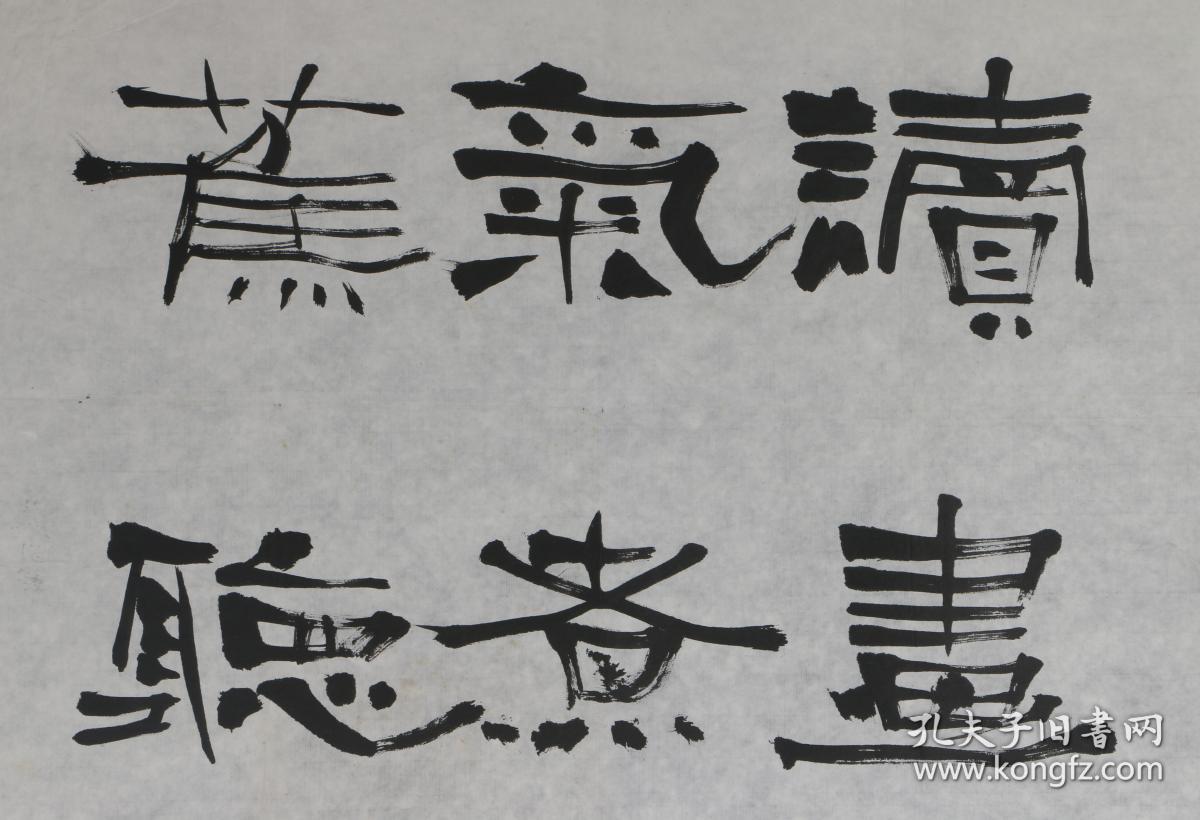 讀畫
氣煮
蕉聽
孔夫子旧书网
www.kongfz.com